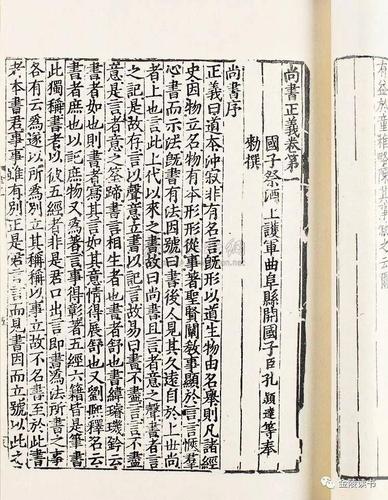 有益於童稚略陳其事敘之云爾
尚書正義卷第一
國子祭酒上護軍曲阜縣開國子臣孔穎達等奉
勑撰
尚書序
正義曰道本沖寂非有名言既形以道生物由名舉則凡諸經
史因物立名物有本形形從事著聖賢闡敘事顯於言言愜羣
心書而示法既書有法因號曰書後人見其久遠自於上世尚
者上也言此上代以來之書故曰尚書且言者意之聲書者言
之記是故存言以聲意立書以記言故易曰書不盡言言不盡
意是言者意之筌蹄書言相生者也書者舒也書緯璿璣鈐云
書者如也則書者寫其言如其意情得展舒也又劉熙釋名云
書者庶也以記庶物又為著言事得彰著五經六籍皆是筆書
此獨稱書者以彼五經者非是君口出言即書為法所書之事
各有云為遂以所為別立其稱稱以事立故不名書至於此書
者本書君事事雖有別正是君言言而見書因而立號以此之
金陵读书